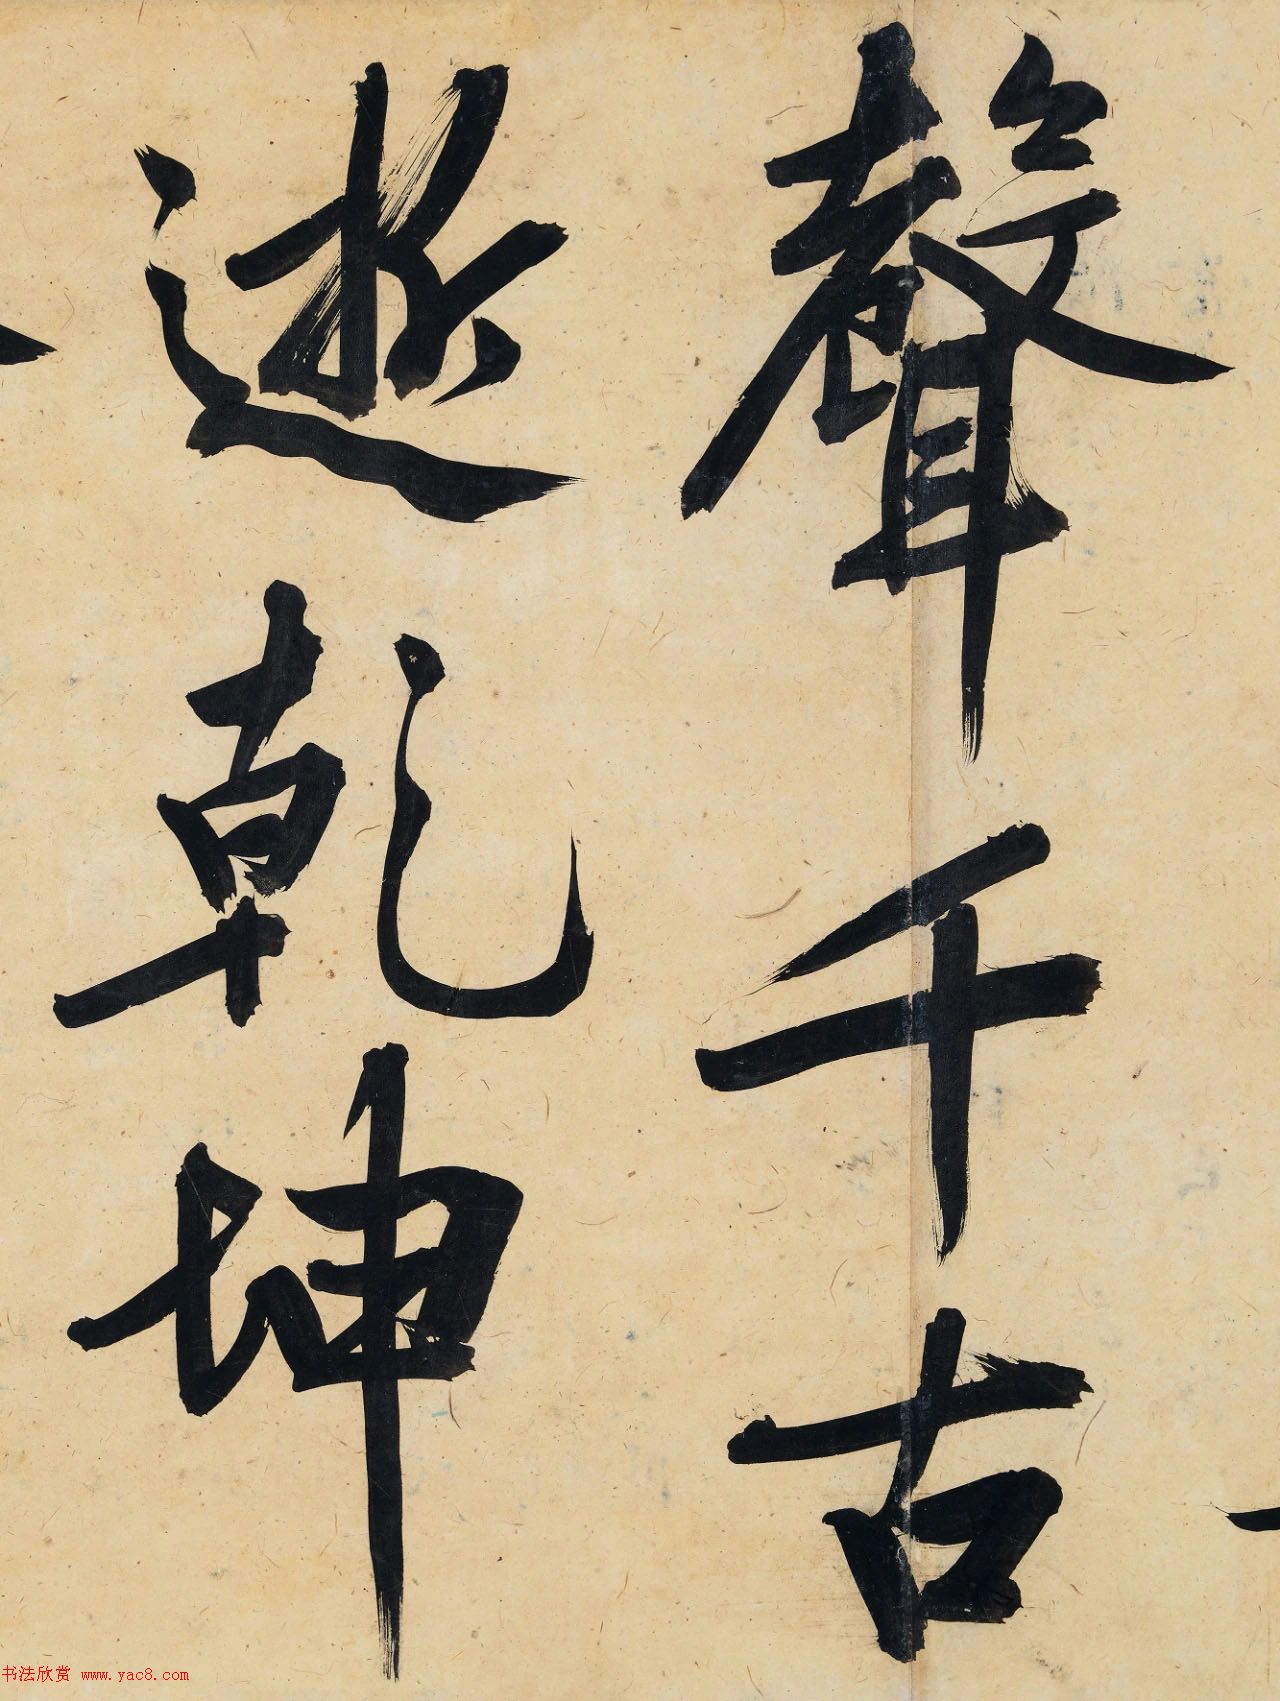 聲千古
逝乾坤
书法欣赏 www.yac8.com